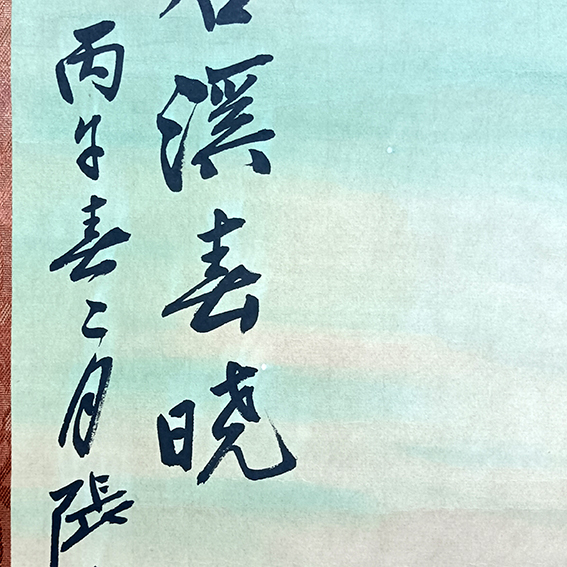 溪春晓
丙午春二月張